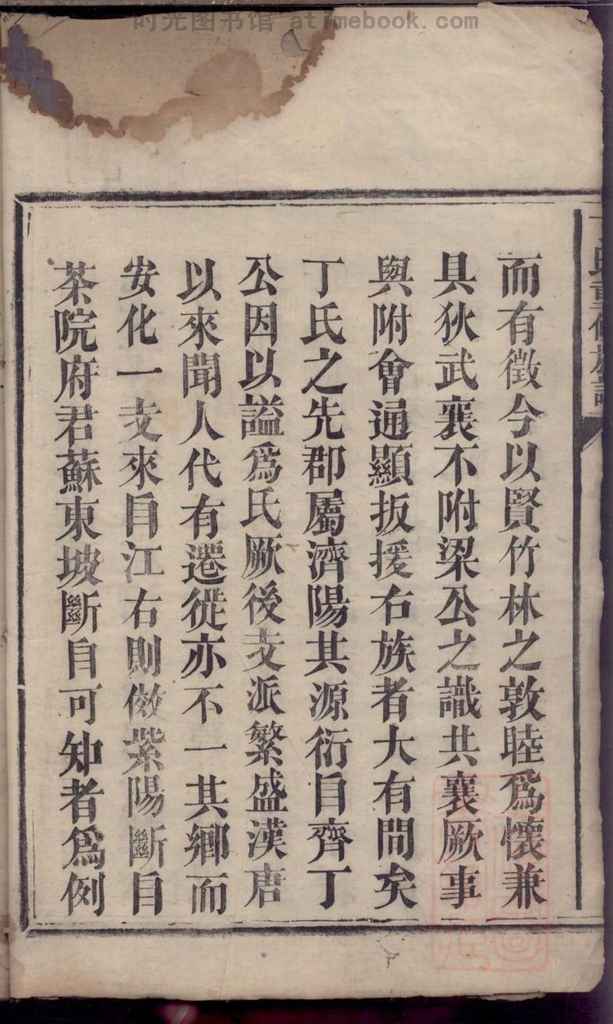 时光图书馆 atimebook.com
而有徵今以賢竹林之敦睦爲懷兼
具狄武襄不附梁公之識共襄厥事
與附會通顯扳援右族者大有間矣
丁氏之先郡屬濟陽其源衍自齊丁
公因以謚爲氏厥後支派繁盛漢唐
以來聞人代有遷徙亦不一其鄉而
安化一支來自江右則倣紫陽斷自
茶院府君蘇東坡斷自可知者爲例